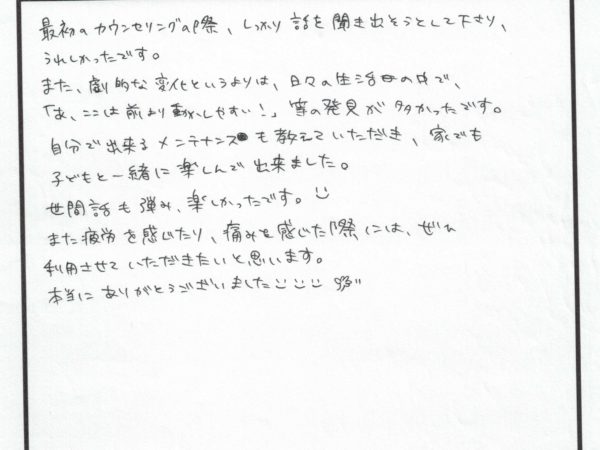 最初のカウンセリングの際、しっかり話を聞き出そうとして下さり、
うれしかったです。
また、劇的な変化というよりは、日々の生活の中で、
「あ、ここは前より動かしやすい!」等の発見が多かったです。
自分で出来るメンテナンスも教えていただき、家でも
子どもと一緒に楽しんで出来ました。
世間話も弾み、楽しかったです。
また疲労を感じたり、痛みを感じた際には、ぜひ
利用させていただきたいと思います。
本当にありがとうございました